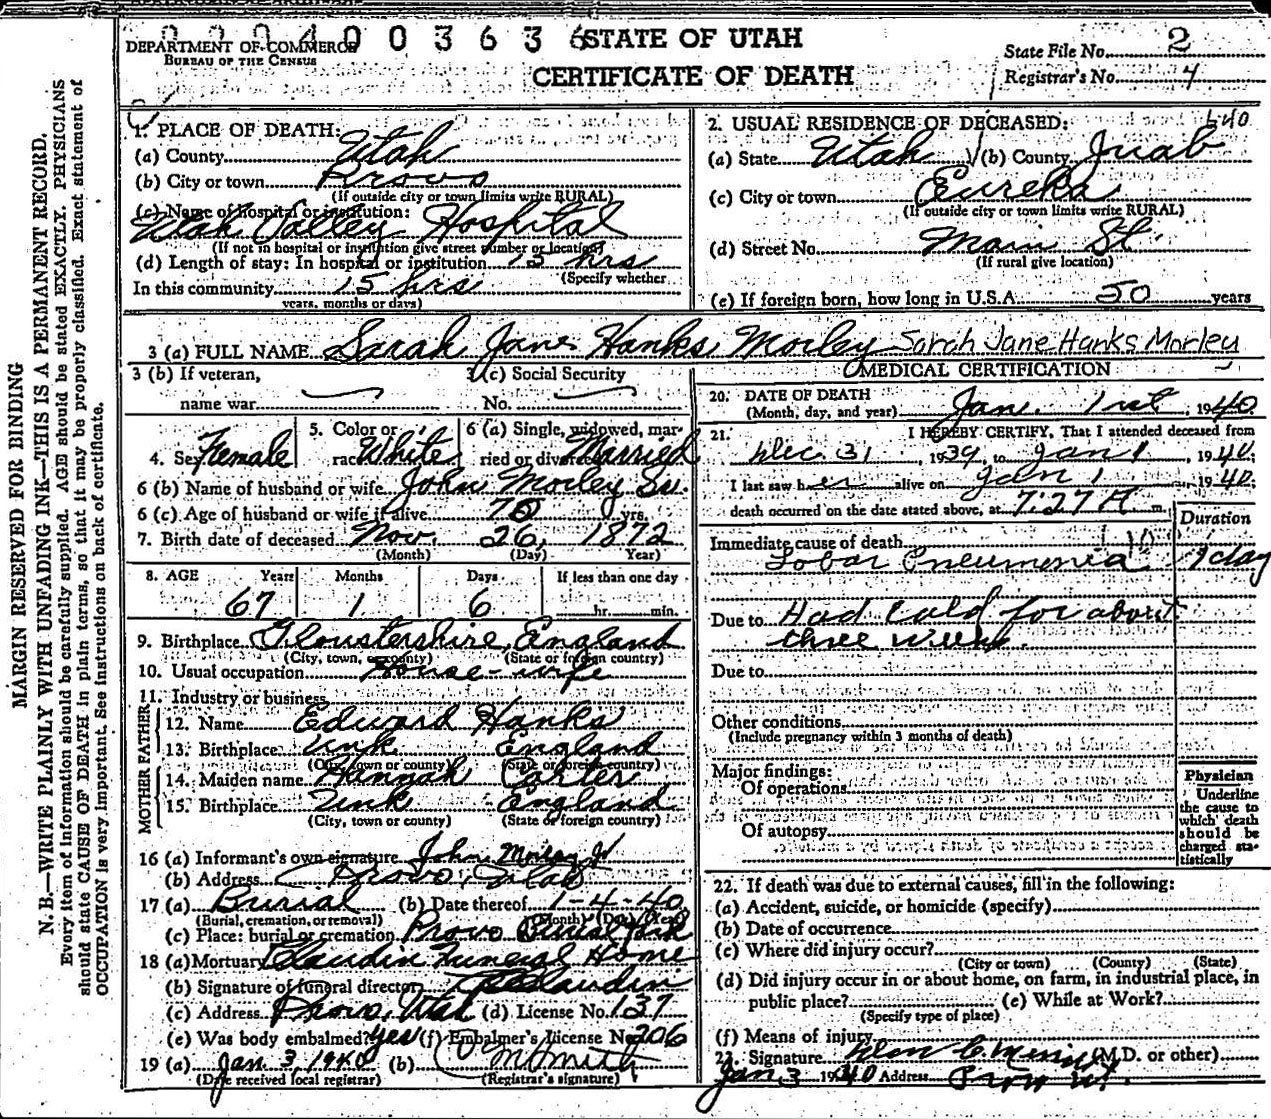 0004003636
STATE OF UTAH
CERTIFICATE OF DEATH
DEPARTMENT OF COMMERCE
BUREAU OF THE CENSUS
State File No. 2
Registrar's No. 4
MARGIN RESERVED FOR BINDING
N. B.—WRITE PLAINLY WITH UNFADING INK—THIS IS A PERMANENT RECORD.
Every item of information should be carefully supplied. AGE should be stated EXACTLY. PHYSICIANS
should state CAUSE OF DEATH in plain terms, so that it may be properly classified. Exact statement of
OCCUPATION is very important. See instructions on back of certificate.
1. PLACE OF DEATH:
(a) County Utah
(b) City or town Provo
(If outside city or town limits write RURAL)
(c) Name of hospital or institution:
Utah Valley Hospital
(If not in hospital or institution give street number or location)
(d) Length of stay: In hospital or institution 15 hrs
(Specify whether
In this community 15 hrs
years, months or days)
2. USUAL RESIDENCE OF DECEASED: 640
(a) State Utah (b) County Juab
(c) City or town Eureka
(If outside city or town limits write RURAL)
(d) Street No. Main St.
(If rural give location)
(e) If foreign born, how long in U.S.A. 50 years
3 (a) FULL NAME Sarah Jane Hanks Morley Sarah Jane Hanks Morley
3 (b) If veteran,
name war
3 (c) Social Security
No.
4. Sex Female
5. Color or
race White
6 (a) Single, widowed, mar-
ried or divorced Married
6 (b) Name of husband or wife John Morley Sr.
6 (c) Age of husband or wife if alive yrs.
7. Birth date of deceased Nov. 26, 1872
(Month) (Day) Year)
8. AGE Years Months Days If less than one day
67 1 6 hr. min.
9. Birthplace Gloustershire, England
(City, town, or county) (State or foreign country)
10. Usual occupation House-wife
11. Industry or business
FATHER
12. Name Edward Hanks
13. Birthplace Unk England
(City, town or county) (State or foreign country)
MOTHER
14. Maiden name Hannah Carter
15. Birthplace Unk England
(City, town or county) (State or foreign country)
16 (a) Informant's own signature John Morley Jr
(b) Address Provo, Utah
17 (a) Burial (b) Date thereof 1-4-40
(Burial, cremation, or removal) (Month) (Day) (Year)
(c) Place: burial or cremation Provo Burial Park
18 (a) Mortuary Claudin Funeral Home
(b) Signature of funeral director Claudin
(c) Address Provo, Utah (d) License No. 137
(e) Was body embalmed? yes (f) Embalmer's License No. 206
19 (a) Jan 3, 1940 (b) Smith
(Date received local registrar) (Registrar's signature)
MEDICAL CERTIFICATION
20. DATE OF DEATH
(Month, day, and year) Jan. 1st, 1940
21. I HEREBY CERTIFY, That I attended deceased from
Dec. 31, 1939, to Jan 1, 1940
I last saw her alive on Jan 1, 1940
death occurred on the date stated above, at 7:27 A m.
Duration
Immediate cause of death
Lobar Pneumonia 1 day
Due to Had Cold for about
three weeks.
Due to
Other conditions
(Include pregnancy within 3 months of death)
Major findings:
Of operations
Of autopsy
Physician
Underline
the cause to
which death
should be
charged sta-
tistically
22. If death was due to external causes, fill in the following:
(a) Accident, suicide, or homicide (specify)
(b) Date of occurrence
(c) Where did injury occur?
(City or town) (County) (State)
(d) Did injury occur in or about home, on farm, in industrial place, in
public place? (e) While at Work?
(Specify type of place)
(f) Means of injury
23. Signature (M.D. or other)
Jan 3 1940 Address Provo Ut.